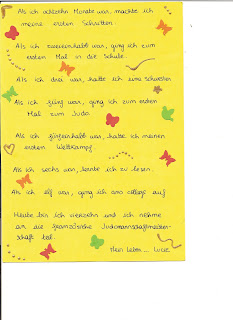 Als ich achtzehn Monate war, machte ich
meine ersten Schritten.
Als ich zweieinhalb war, ging ich zum
ersten Mal in die Schule.
Als ich drei war, hatte ich eine Schwester
Als ich fünf war, ging ich zum ersten
Mal zum Judo.
Als ich fünfeinhalb war, hatte ich meinen
ersten Wettkampf.
Als ich sechs war, lernte ich zu lesen.
Als ich elf war, ging ich ans collège auf
Heute bin ich vierzehn und ich nehme
an die französische Judomannschaftmeister-
schaft teil.
Mein Leben... Lucie